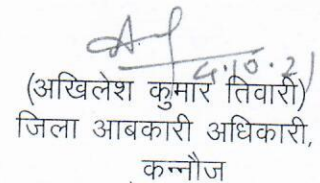 4.10.21
(अखिलेश कुमार तिवारी)
जिला आबकारी अधिकारी,
कन्नौज